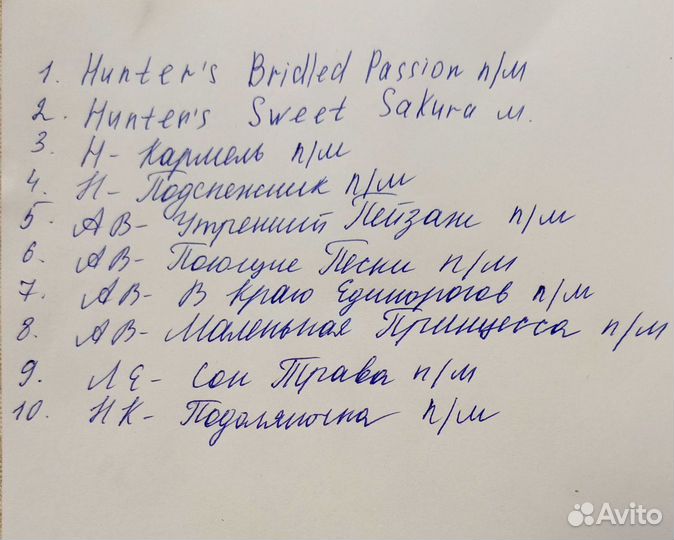 1. Hunter's Bridled Passion п/м
2. Hunter's Sweet Sakura м.
3. Н- Кармель п/м
4. Н- Подснежник п/м
5. АВ- Утренний Пейзаж п/м
6. АВ- Поющие Пески п/м
7. АВ- В краю Единорогов п/м
8. АВ- Маленькая Принцесса п/м
9. ЛЕ- Сон Трава п/м
10. НК- Подоляночка п/м
Avito